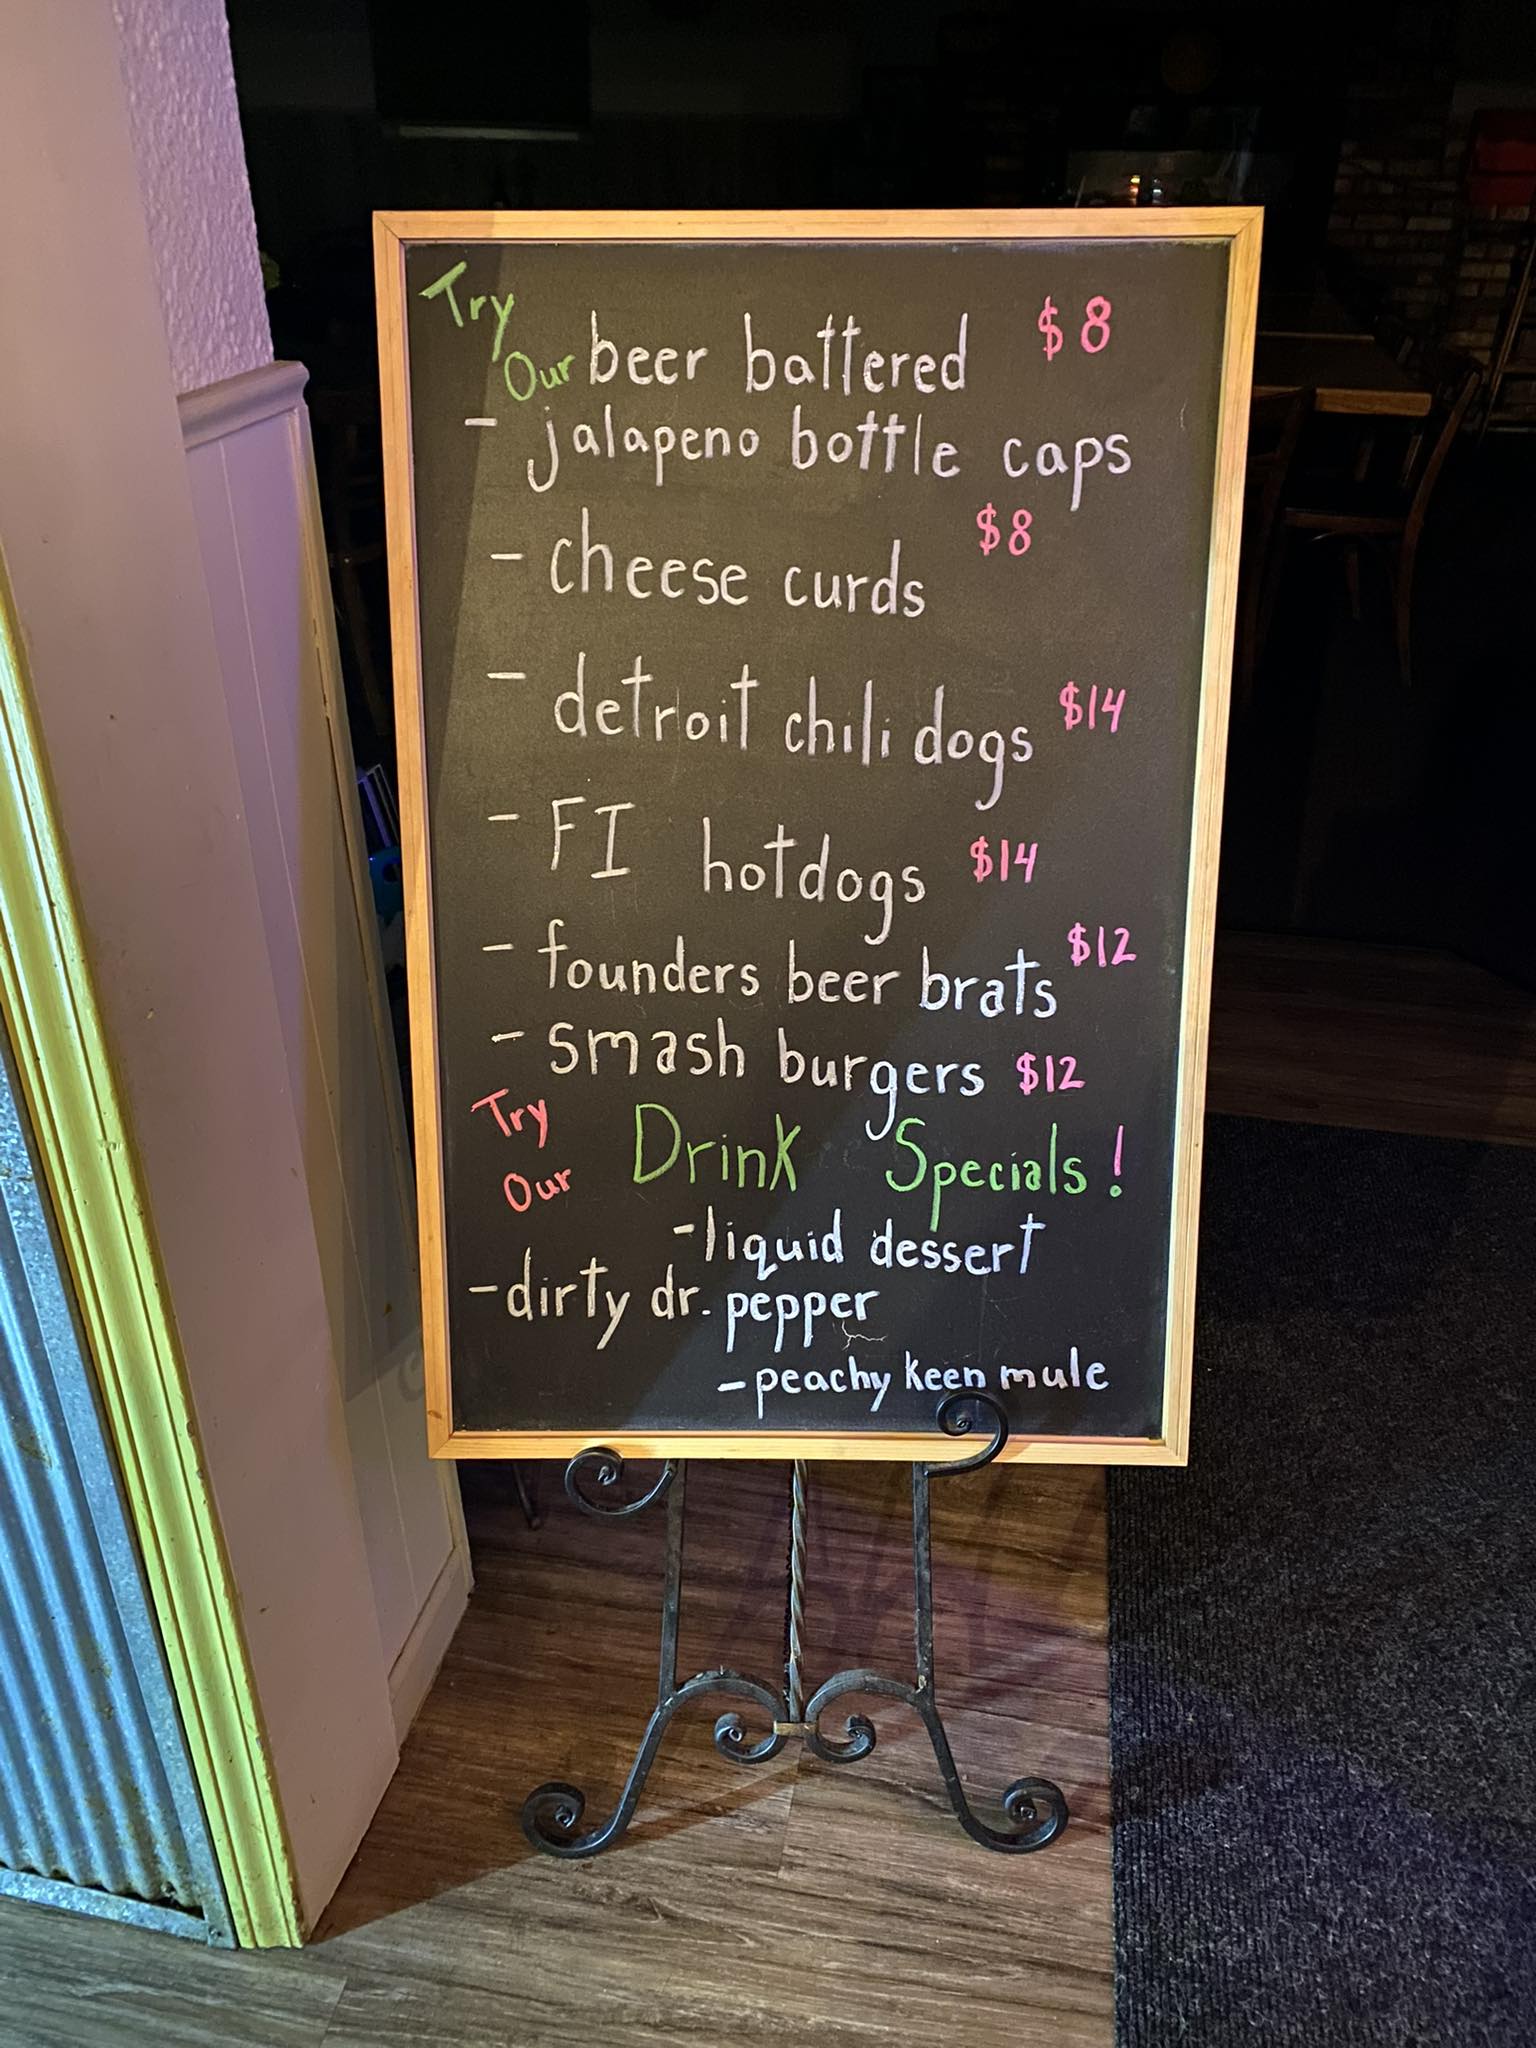 Try
Our beer battered $8
- jalapeno bottle caps
- cheese curds $8
- detroit chili dogs $14
- FI hotdogs $14
- founders beer brats $12
- smash burgers $12
Try
Our Drink Specials!
- liquid dessert
- dirty dr. pepper
- peachy keen mule